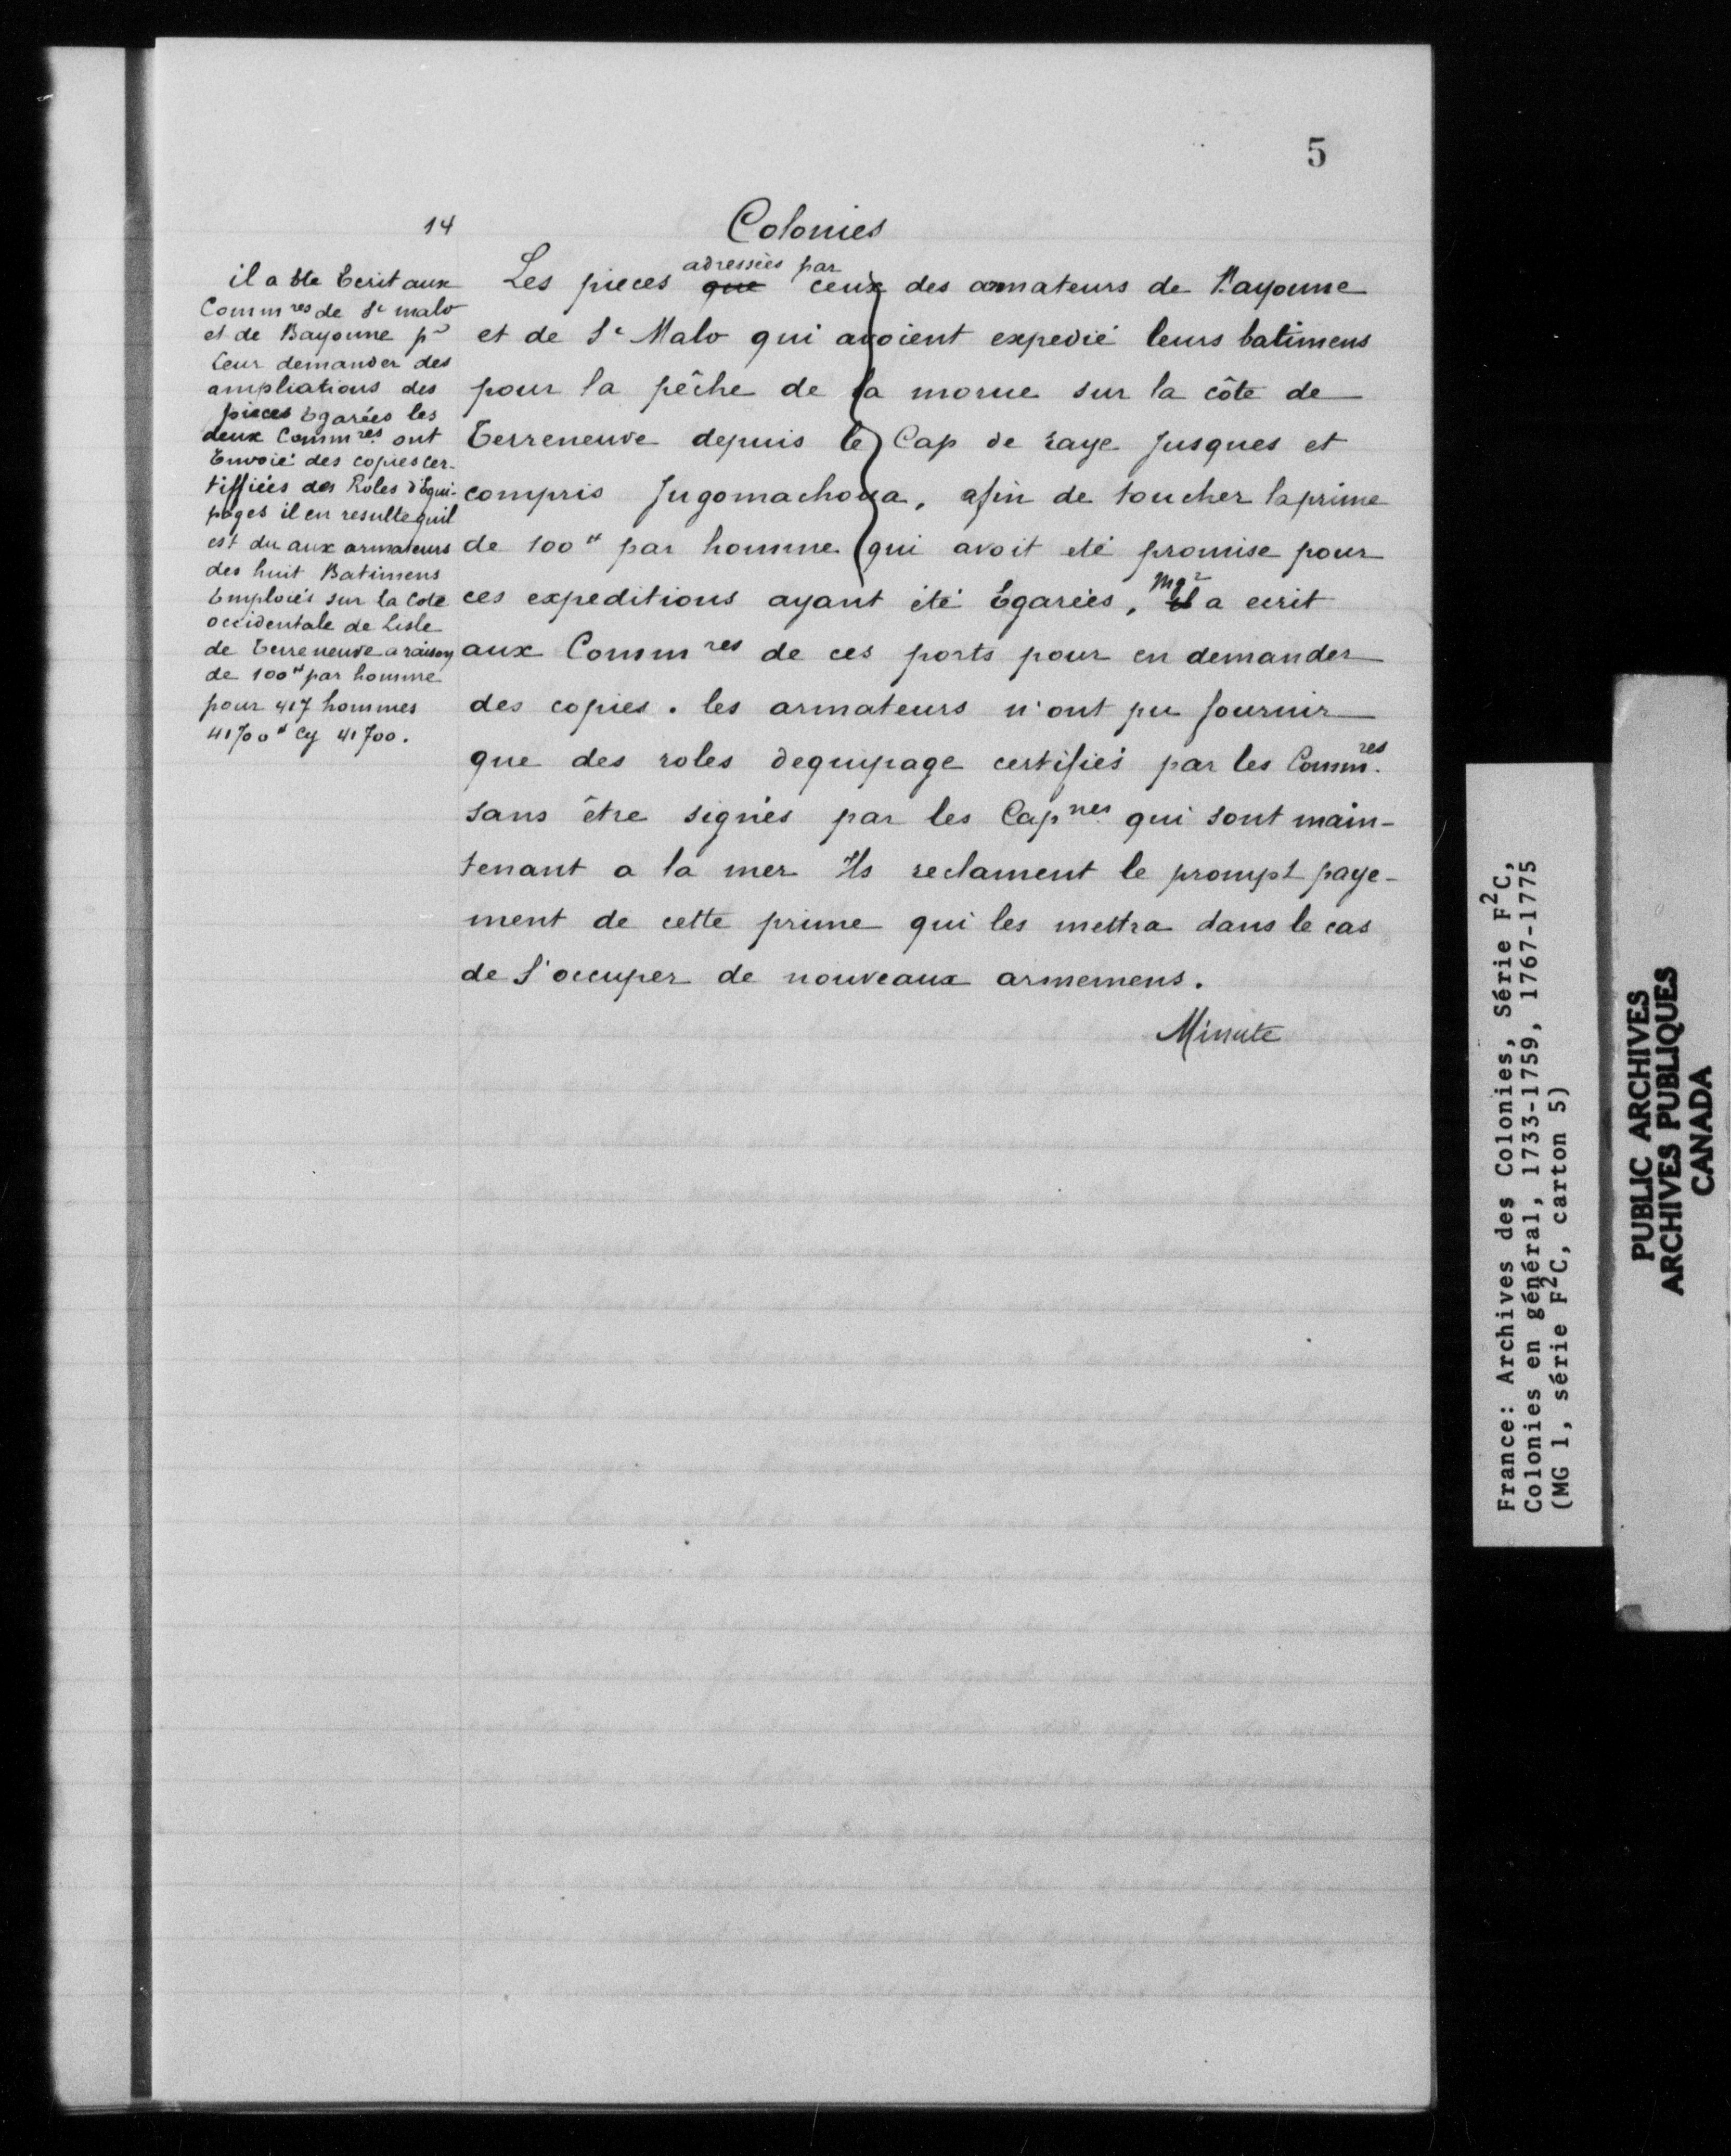 5
14
Colonies
il a ete Ecrit aux
Comm res de St malo
et de Bayonne pr
leur demander des
ampliations des
pieces Egarées les
deux Comm res ont
Envoié des copies cer-
tiffiées des Roles d'Equi-
pages il en resulte quil
est du aux armateurs
des huit Batimens
Emploiés sur la Cote
occidentale de Lisle
de Terreneuve a raison
de 100 ₶ par homme
pour 417 hommes
41700 ₶ Cy 41700.
adressées par
Les pieces que ceux des armateurs de Bayonne
et de St Malo qui avoient expedié leurs batimens
pour la pêche de la morue sur la côte de
Terreneuve depuis le Cap de raye Jusques et
compris Jugomachoua, afin de toucher la prime
de 100 ₶ par homme qui avoit eté promise pour
ces expeditions ayant été Egarées, Mgr il a ecrit
aux Comm res de ces ports pour en demander
des copies. les armateurs n'ont pu fournir
que des roles dequipage certifiés par les Comm. res
sans être signés par les Cap nes qui sont main-
tenant a la mer Ils reclament le prompt paye-
ment de cette prime qui les mettra dans le cas
de S'occuper de nouveaux armemens.
Minute
France: Archives des Colonies, Série F2C,
Colonies en général, 1733-1759, 1767-1775
(MG 1, série F2C, carton 5)
PUBLIC ARCHIVES
ARCHIVES PUBLIQUES
CANADA